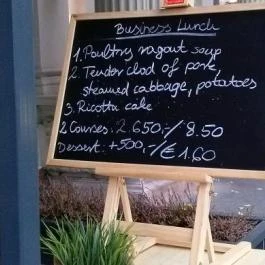 Business Lunch
1. Poultry ragout soup
2. Tender clod of pork,
steamed cabbage, potatoes
3. Ricotta cake
2 Courses: 2.650,-/ 8.50
Dessert: +500,-/€1.60